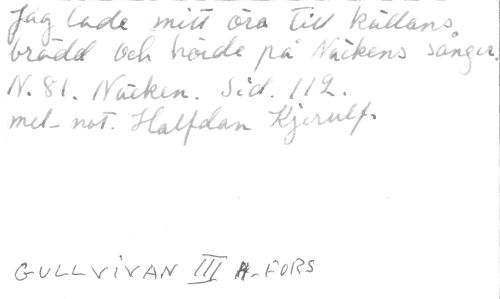 Jag lade mitt öra till källans
brädd och hörde på Näckens sånger.
N. 81. Näcken. Sid. 112.
mel-not. Halfdan Kjerulf.
GULLVIVAN III H-FORS